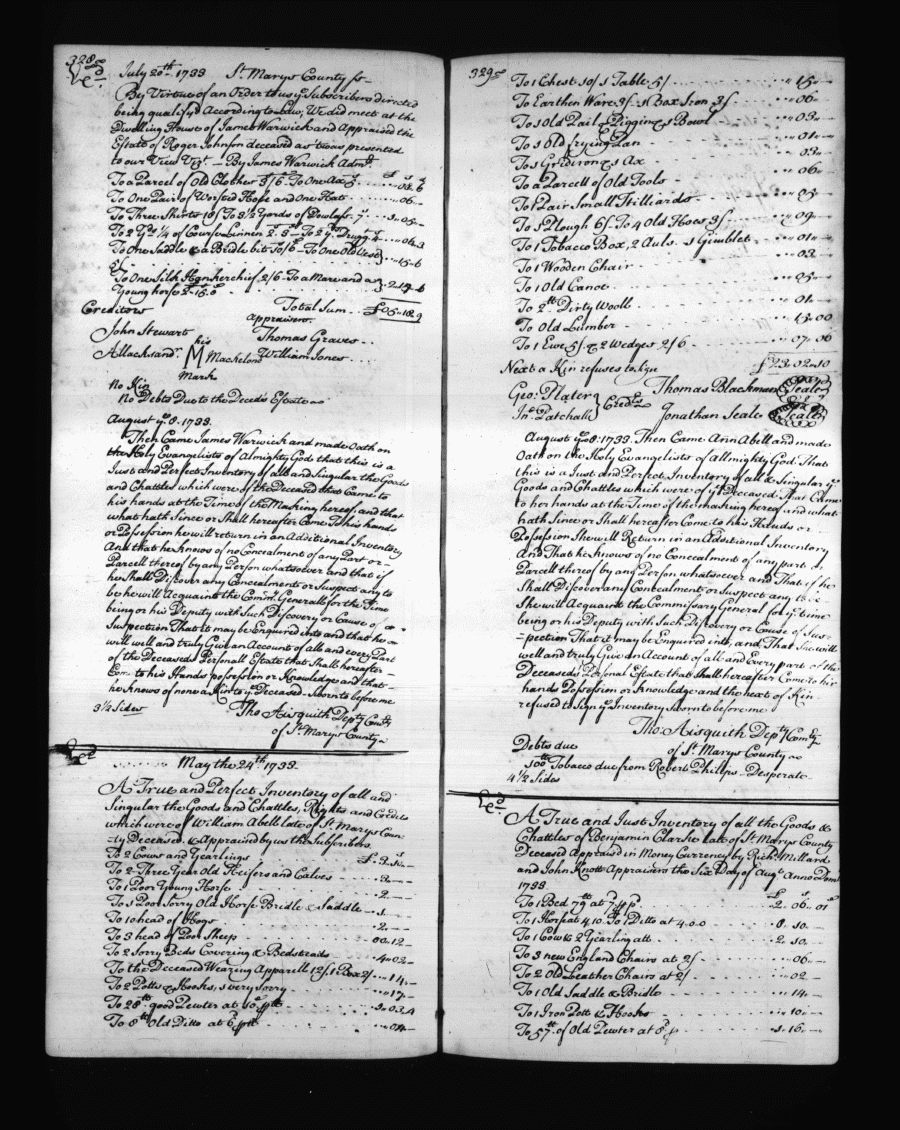 328
July 20th 1733 St. Marys County ss
By Virtue of an Order to us ye Subscribers directed
being qualifyd According to Law, We did meet at the
Dwelling House of James Warwick and Appraised the
Estate of Roger Johnson deceased as twas presented
to our View Vizt. By James Warwick Admr.
To a Parcel of Old Clothes 3/6 To One Ax
To One Pair of Worsted Hose and One Hatt 06
To Three Shirts 10/ To 3½ Yards of Dowlass
To 2 Yds ¼ of Course Linnen
To One Saddle & a Bridle bit To/6 To One Old 15-6
To One Silk Handkerchief 2/6 To a Mare and a
Young horse
Creditors Total Sum £05-18.9
Appraisers
John Stewart Thomas Graves
his
Allacksandr. M Mackelond William Jones
Mark
No Kin
No Debts Due to the Deceds Estate
August ye 8. 1733.
Then Came James Warwick and made Oath on
the Holy Evangelists of Almighty God that this is a
Just and Perfect Inventory of all and Singular the Goods
and Chattles which were of the Deceased that Came to
his hands at the Time of the Making hereof, and that
what hath Since or Shall hereafter Come To his hands
or Possession he will return in an Additional Inventory
And that he Knows of no Concealment of any Part or
Parcell thereof by any Person whatsoever and that if
he Shall Discover any Concealment or Suspect any to
be he will Acquaint the Commy. Generall for the Time
being or his Deputy with Such Discovery or Cause of
Suspection That it may be Enquired into and that he
will well and truly Give an Account of all and every Part
of the Deceaseds Personall Estate that Shall hereafter
Come to his Hands possession or Knowledge and that
he Knows of none a Kin to ye Deceased. Sworn to before me
3½ Sides Tho Aisquith Depty Comry
of St. Marys County
May the 24th 1733.
A True and Perfect Inventory of all and
Singular the Goods and Chattles, Rights and Credits
which were of William Abell late of St. Marys Coun-
ty Deceased, & Appraised by us the Subscribers.
To 2 Cows and Yearlings
To 2 Three Year Old Heifers and Calves 3
To 1 Poor Young Horse 2
To 1 Poor Sorry Old Horse Bridle & Saddle 1
To 10 head of Hogs 2
To 3 head of Poor Sheep 00.12
To 2 Sorry Beds Covering & Bedsteads 4.02
To the Deceased Wearing Apparell 12/ 1 Box 2/ 14
To 2 Potts & Hooks, 1 very Sorry 17
To 28th good Pewter at 10d pth 1.03.4
To 8th Old Ditto at 6d pth 04
329
To 1 Chest 10/ 1 Table 5/ 15
To Earthen Ware 3/ 1 Box Iron 3/ 06
To 1 Old Pail & Piggin & 1 Bowl 03
To 1 Old frying Pan 01
To 1 Gridiron & 1 Ax 03
To a Parcell of Old Tools 06
To 1 Pair Small Stilliards 05
To 1 Plough 6/ To 4 Old Hoes 3/ 09
To 1 Tobacco Box, 2 Auls 1 Gimblet 01
To 1 Wooden Chair 03
To 1 Old Canoe 05
To 2th Dirty Wooll 01
To Old Lumber 15.00
To 1 Ewe 5/ & 2 Wedges 2/6 07.06
Next a Kin refuses to Sign £23.02.10
Geo: Plater Thomas Blackman Seale
Credrs
Jno. Patchall Jonathan Seale Seale
August ye 8: 1733. Then Came Ann Abell and made
Oath on the Holy Evangelists of Allmighty God That
this is a Just and Perfect Inventory of all & Singular ye
Goods and Chattles which were of ye Deceased That Came
to her hands at the Time of the making hereof and what
hath Since or Shall hereafter Come to his Hands or
Possession She will Return in an Additional Inventory
And That he Knows of no Concealment of any part or
Parcell thereof by any Person whatsoever and That if her
Shall Discover any Concealment or Suspect any to be
She will Acquaint the Commissary General for ye time
being or his Deputy with Such Discovery or Cause of Sus-
pection That it may be Enquired into, and That She will
well and truly Give an Account of all and Every part of the
Deceaseds Personal Estate that Shall hereafter Come to his
hands Possession or Knowledge and the next of Kin
refused to Sign ye Inventory Sworn to before me
Tho: Aisquith Depty Comry
Debts due of St. Marys County
100th Tobacco due from Robert Phillips Desperate
4½ Sides
A True and Just Inventory of all the Goods &
Chattles of Benjamin Clarke late of St. Marys County
Deceased Appraisd in Money Currency by Richd. Millard
and John Knott Appraisers the Six Day of Augt. Anno Domi
1733.
To 1 Bed 79th at 7d p 2.06.01
To 1 Horse at 4.10. To 1 Ditto at 4.0.0 8.10
To 1 Cow & 2 Yearling att 2.10
To 3 new England Chairs at 2/ 06
To 2 Old Leather Chairs at 2/ 02
To 1 Old Saddle & Bridle 14
To 1 Iron Pott & Hooks 10
To 57th of Old Pewter at 8d p 1.16